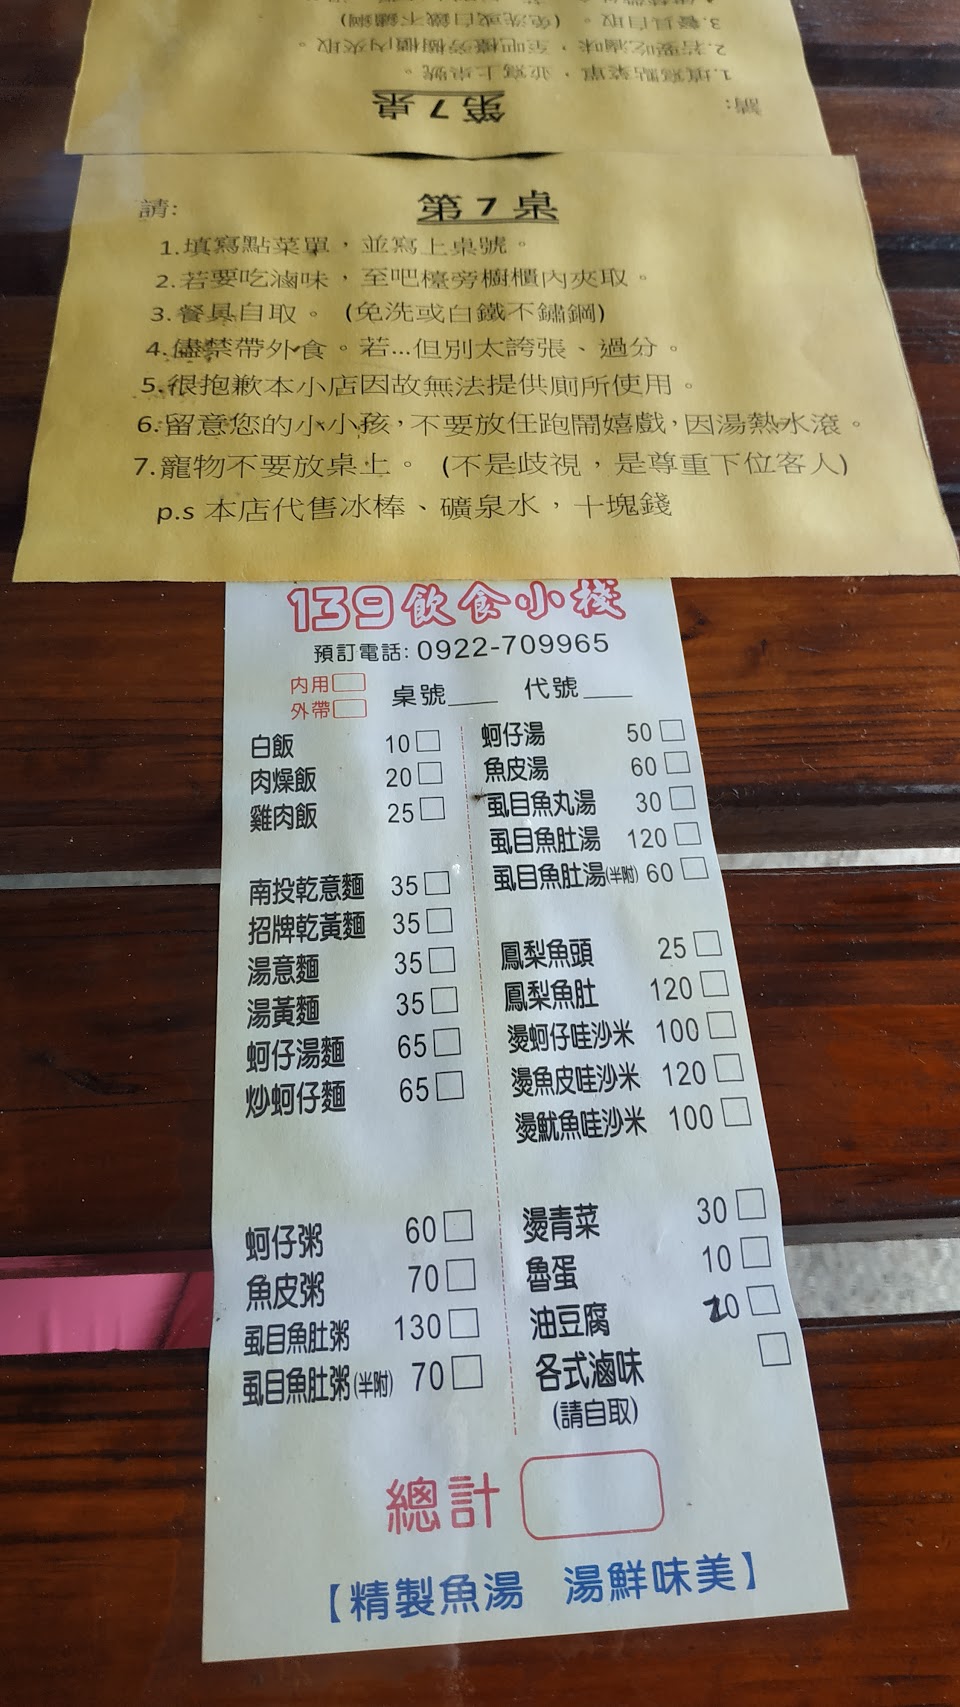 3.餐具自取。(免洗或白鐵不鏽鋼)
2.若要吃滷味，至吧檯旁櫥櫃內夾取。
1.填寫點菜單，並寫上桌號。
請:
第7桌
第7桌
請:
1.填寫點菜單，並寫上桌號。
2.若要吃滷味，至吧檯旁櫥櫃內夾取。
3.餐具自取。(免洗或白鐵不鏽鋼)
4.儘禁帶外食。若...但別太誇張、過分。
5.很抱歉本小店因故無法提供廁所使用。
6.留意您的小小孩，不要放任跑鬧嬉戲，因湯熱水滾。
7.寵物不要放桌上。(不是歧視，是尊重下位客人)
p.s 本店代售冰棒、礦泉水，十塊錢
139飲食小棧
預訂電話: 0922-709965
內用
外帶
桌號 代號
白飯 10
肉燥飯 20
雞肉飯 25
南投乾意麵 35
招牌乾黃麵 35
湯意麵 35
湯黃麵 35
蚵仔湯麵 65
炒蚵仔麵 65
蚵仔粥 60
魚皮粥 70
虱目魚肚粥 130
虱目魚肚粥(半附) 70
蚵仔湯 50
魚皮湯 60
虱目魚丸湯 30
虱目魚肚湯 120
虱目魚肚湯(半附) 60
鳳梨魚頭 25
鳳梨魚肚 120
燙蚵仔哇沙米 100
燙魚皮哇沙米 120
燙魷魚哇沙米 100
燙青菜 30
魯蛋 10
油豆腐 20
各式滷味
(請自取)
總計
【精製魚湯 湯鮮味美】